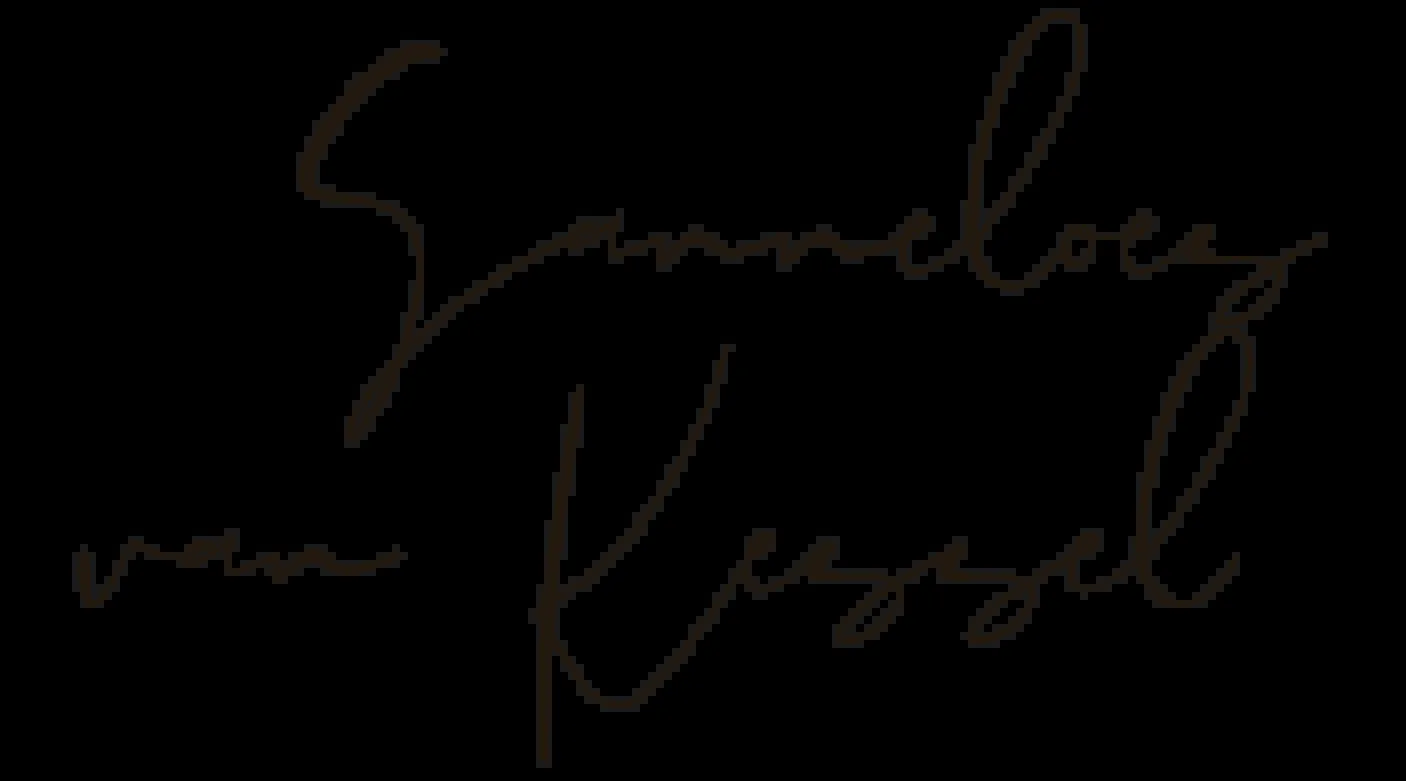 Sanneloes
van Kessel